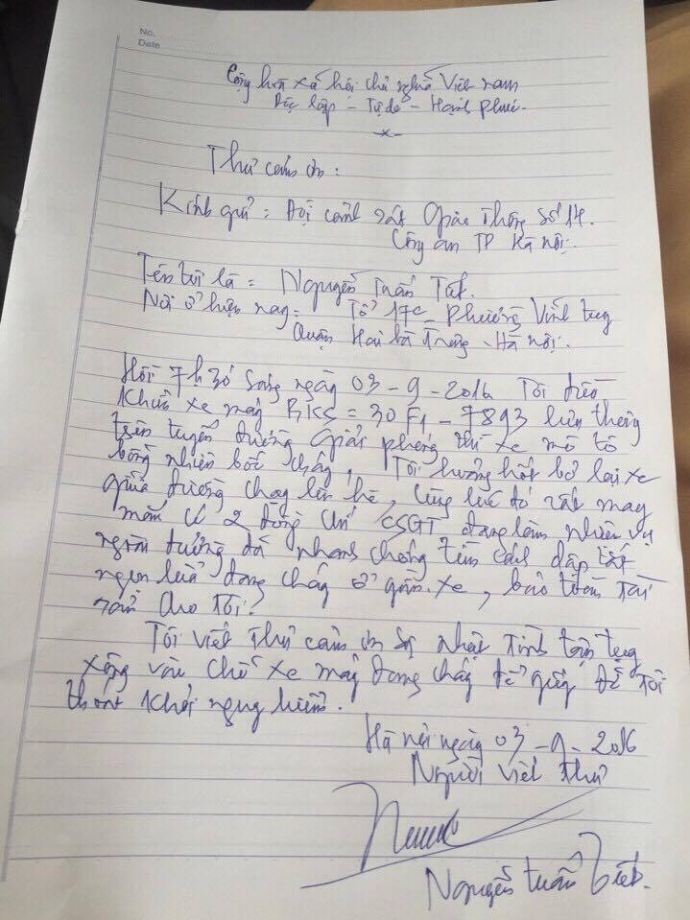 No.
Date
Cộng hòa xã hội chủ nghĩa Việt nam
Độc lập - Tự do - Hạnh phúc.
-x-
Thư cám ơn :
Kính gửi : Đội cảnh sát Giao thông số 14.
Công an TP Hà nội.
Tên tôi là = Nguyễn Tuấn
Nơi ở hiện nay = Tổ 17c - Phường Vĩnh tuy
Quận Hai bà Trưng - Hà nội.
Hồi 7h30 sáng ngày 03-9-2016 Tôi điều
khiển xe máy BKS = 30F1 - 7893 lưu thông
trên tuyến đường Giải phóng thì xe mô tô
bỗng nhiên bốc cháy, Tôi hoảng hốt bỏ lại xe
giữa đường chạy lên hè, cùng lúc đó rất may
mắn có 2 đồng chí CSGT đang làm nhiệm vụ
ngoài đường đã nhanh chóng tìm cách dập tắt
ngọn lửa đang cháy ở gầm xe, bảo toàn tài
sản cho tôi.
Tôi viết thư cảm ơn sự nhiệt tình
xông vào chỗ xe máy đang cháy để giúp để tôi
thoát khỏi nguy hiểm.
Hà nội ngày 03-9-2016
Người viết thư
Nguyễn tuấn